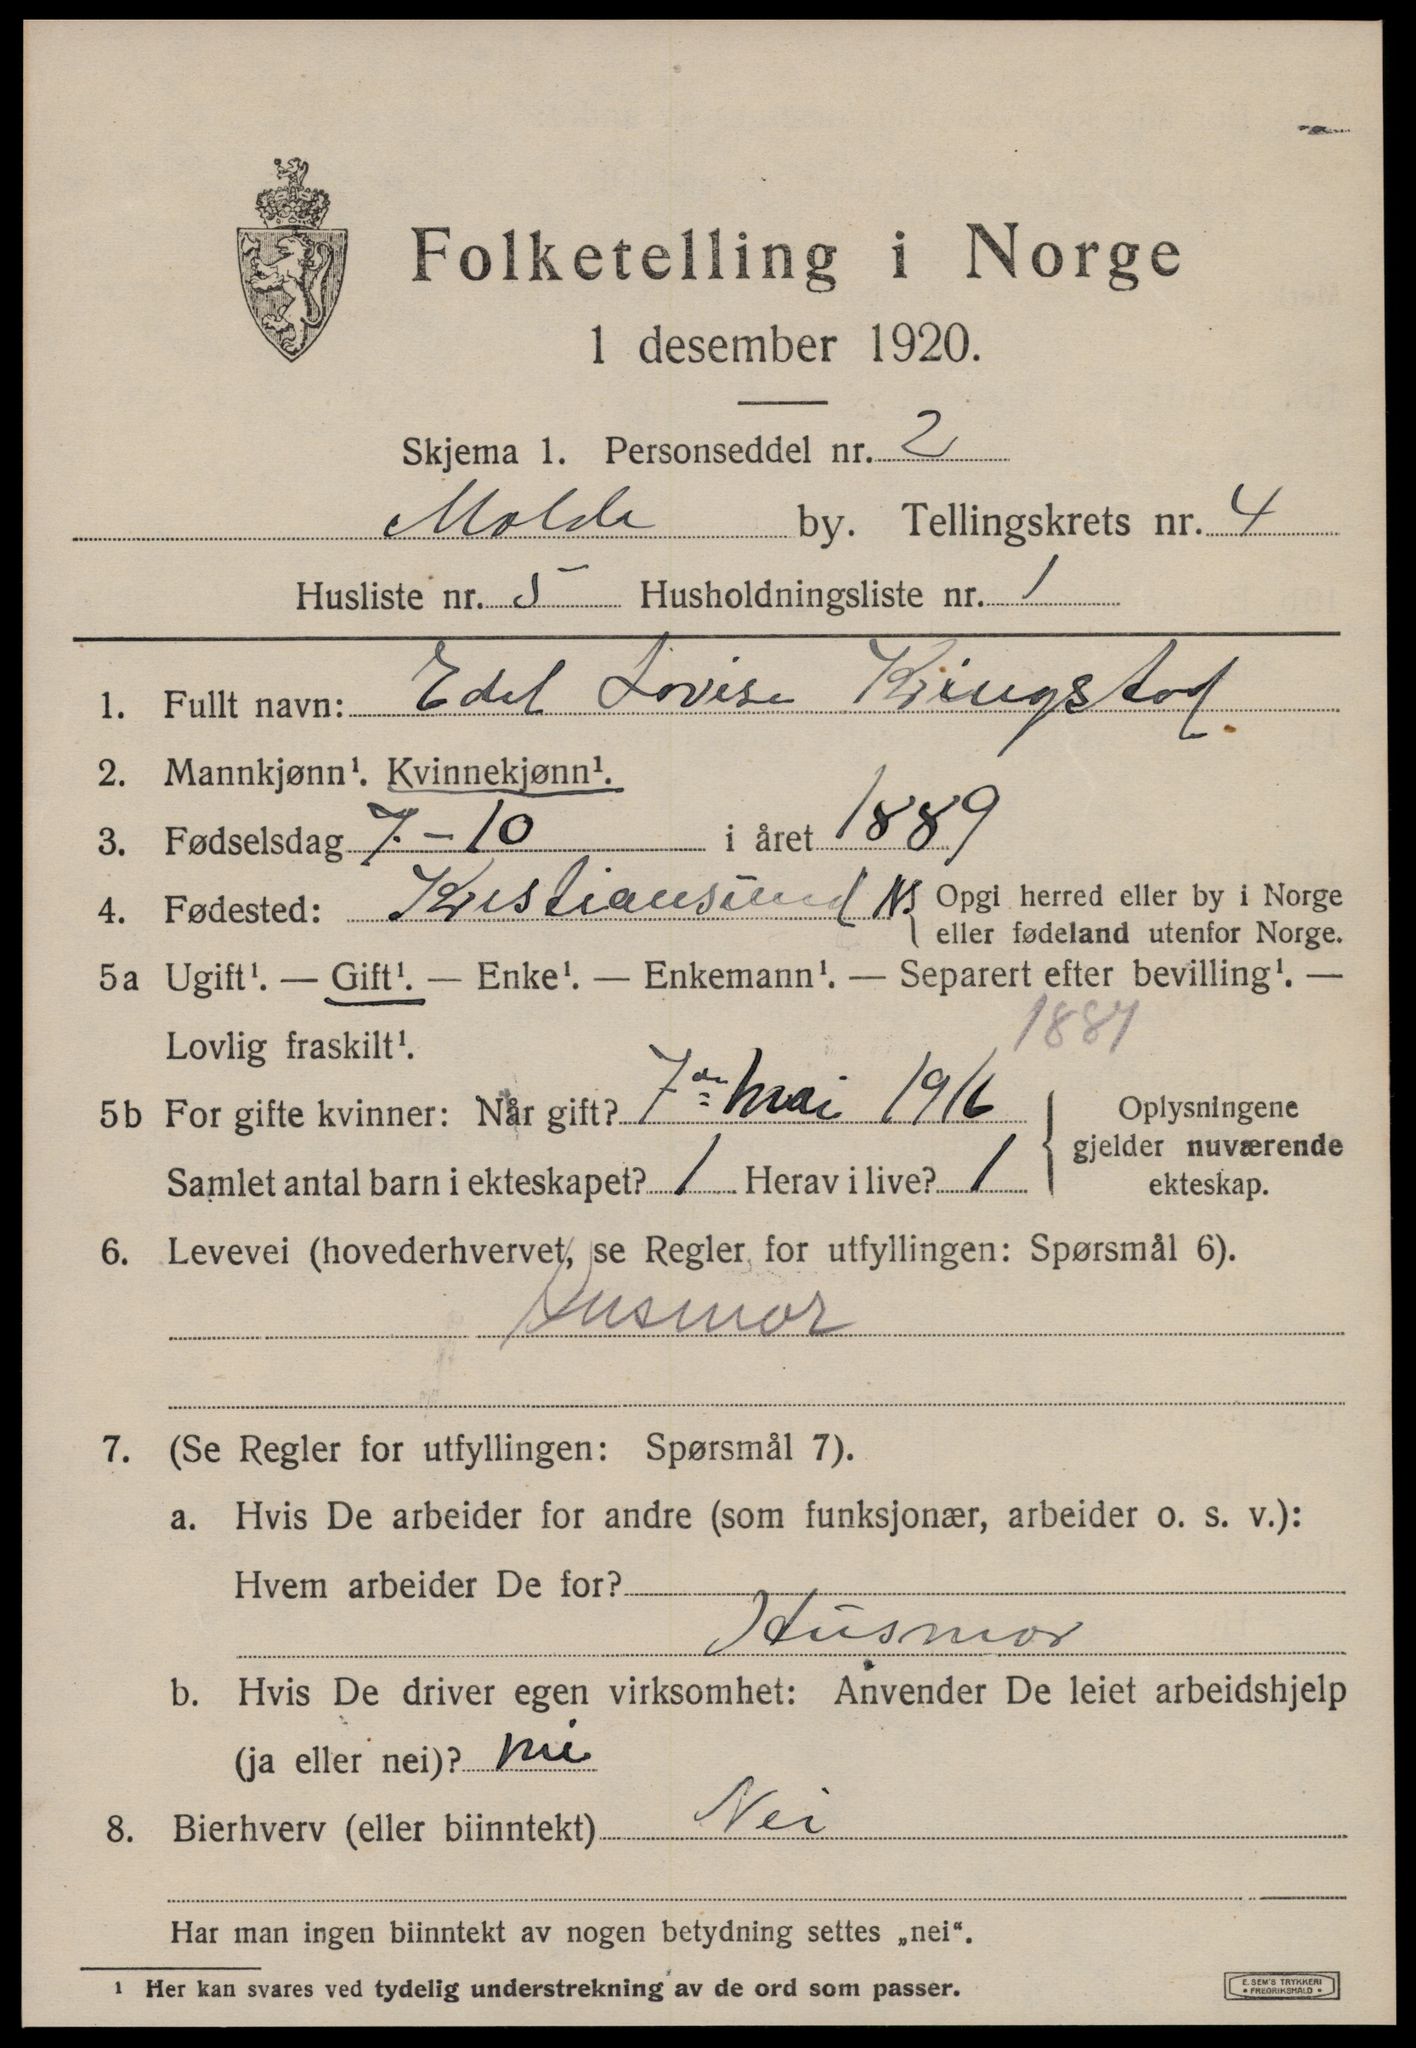 Folketelling i Norge
1 desember 1920.
Skjema 1. Personseddel nr. 2
Molde by. Tellingskrets nr. 4
Husliste nr. 5 Husholdningsliste nr. 1
1. Fullt navn: Edel Lovise Kringstad
2. Mannkjønn¹. Kvinnekjønn¹.
3. Fødselsdag 7-10 i året 1889
4. Fødested: Kristiansund NS Opgi herred eller by i Norge
eller fødeland utenfor Norge.
5a Ugift¹. — Gift¹. — Enke¹. — Enkemann¹. — Separert efter bevilling¹. —
Lovlig fraskilt¹.
5b For gifte kvinner: Når gift? 7de mai 1916
Samlet antal barn i ekteskapet? 1 Herav i live? 1
Oplysningene
gjelder nuværende
ekteskap.
6. Levevei (hovederhvervet, se Regler for utfyllingen: Spørsmål 6).
Husmor
7. (Se Regler for utfyllingen: Spørsmål 7).
a. Hvis De arbeider for andre (som funksjonær, arbeider o. s. v.):
Hvem arbeider De for?
Husmor
b. Hvis De driver egen virksomhet: Anvender De leiet arbeidshjelp
(ja eller nei)? nei
8. Bierhverv (eller biinntekt) Nei
Har man ingen biinntekt av nogen betydning settes „nei“.
¹ Her kan svares ved tydelig understrekning av de ord som passer.
E. SEM'S TRYKKERI
• FREDRIKSHALD •